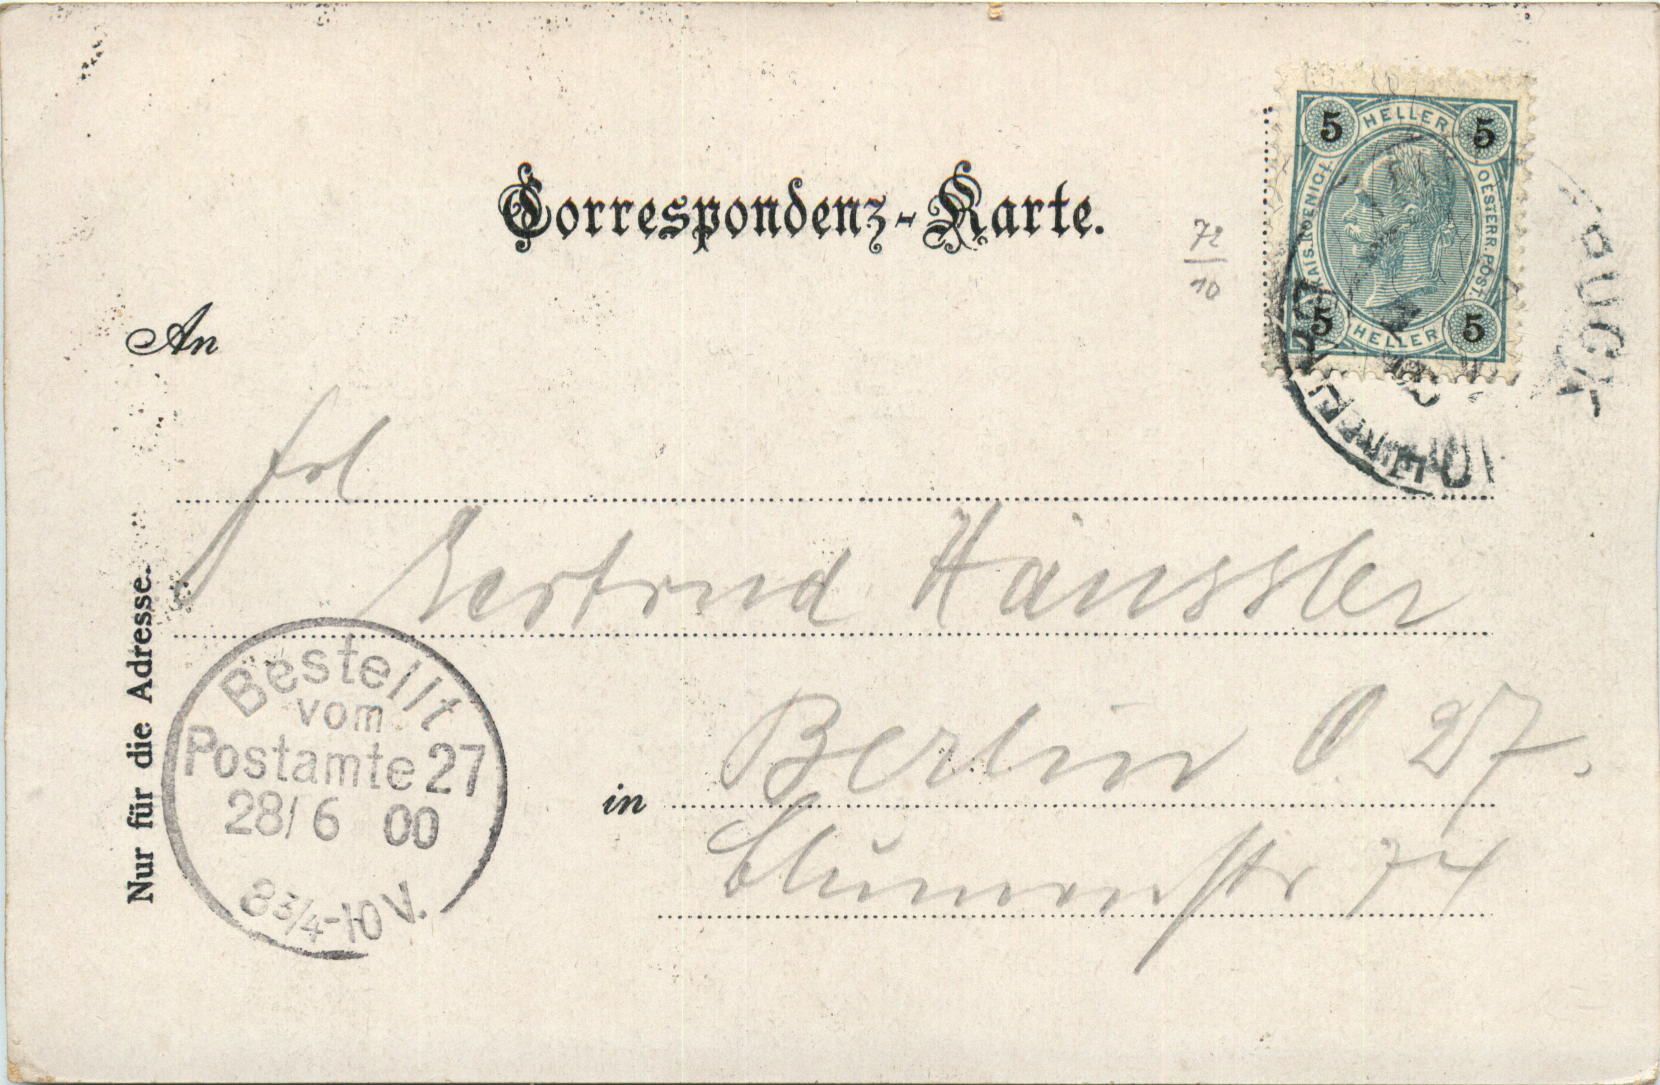 Correspondenz-Karte.
5 HELLER 5
KAIS. KOENIGL. OESTERR. POST.
5 HELLER 5
72
10
An
Frl
Gertrud Häussler
in Berlin O 27.
Blumenstr 74
Nur für die Adresse.
Bestellt
vom
Postamte 27
28/6 00
8¾-10V.